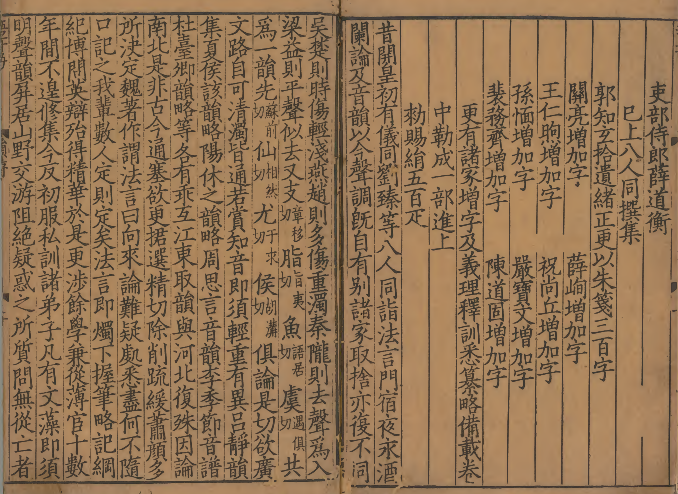 吏部侍郎薛道衡
已上八人同撰集
郭知玄拾遺緒正更以朱箋三百字
關亮增加字 薛峋增加字
王仁煦增加字 祝尚丘增加字
孫愐增加字 嚴寶文增加字
裴務齊增加字 陳道固增加字
更有諸家增字及義理釋訓悉纂略備載卷
中勒成一部進上
勑賜絹五百疋
昔開皇初有儀同劉臻等八人同詣法言門宿夜永酒
闌論及音韻以今聲調既自有別諸家取捨亦復不同
吳楚則時傷輕淺燕趙則多傷重濁秦隴則去聲爲入
梁益則平聲似去又支章移切脂旨夷切魚語居切虞遇俱切共
爲一韻先蘇前切仙相然切尤于求切侯胡溝切俱論是切欲廣
文路自可清濁皆通若賞知音即須輕重有異呂靜韻
集夏侯該韻略陽休之韻略周思言音韻李季節音譜
杜臺卿韻略等各有乖互江東取韻與河北復殊因論
南北是非古今通塞欲更捃選精切除削疏緩蕭顏多
所決定魏著作謂法言曰向來論難疑處悉盡何不隨
口記之我輩數人定則定矣法言即燭下握筆略記綱
紀博問英辯殆得精華於是更涉餘學兼從薄官十數
年間不遑修集今反初服私訓諸弟子凡有文藻即須
明聲韻屏居山野交游阻絕疑惑之所質問無從亡者